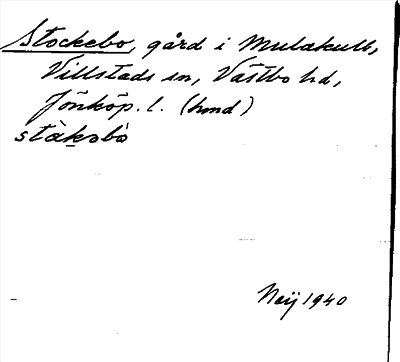 Stockebo, gård i Mulakull,
Villstads sn, Västbo hd,
Jönköp. l. (hmd)
stàkəbò
Neij 1940